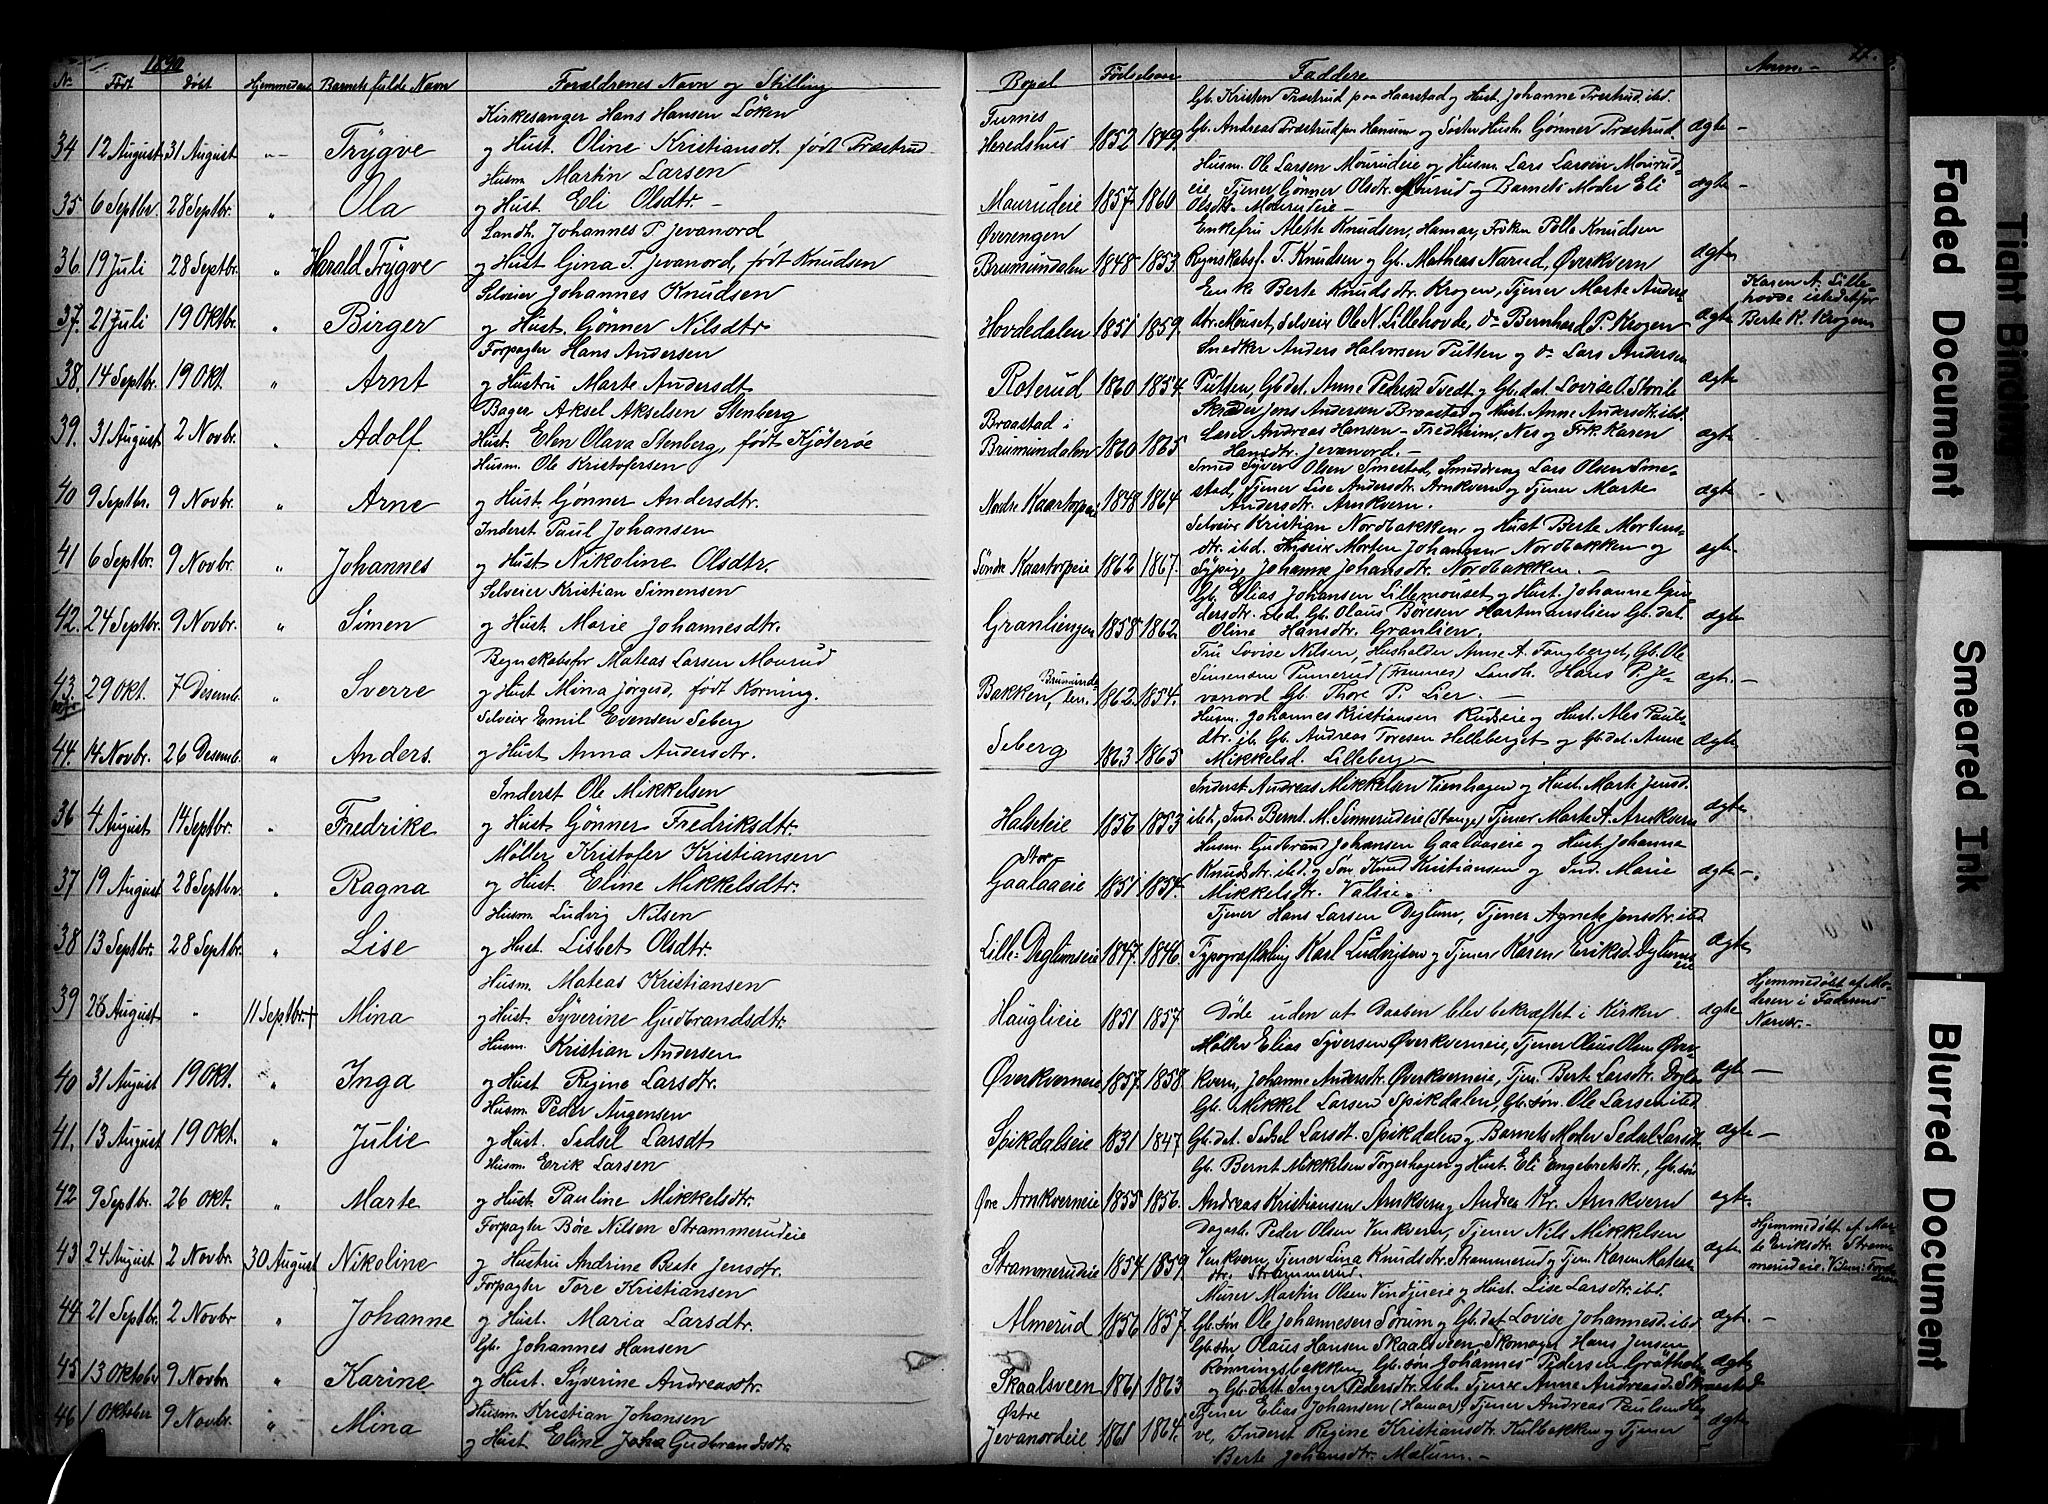 1890
Nr. Født Døbt Hjemmedøbt Barnets fulde Navn Forældrenes Navn og Stilling Bopæl Fødselsaar Faddere Anm.
34 12 August 31 August Trygve
Kirkesanger Hans Hansen Löken
og Hust. Oline Kristiansdt. født Præstrud
Furnes
Heredshus 1852 1849
Gb. Kristen Præstrud paa Haarstad og Hust. Johanne Præstrud ibd.
Gb. Andreas Præstrud og Gönner Præstrud ægte
35 6 Septbr. 28 Septbr. " Ola
Husm. Martin Larsen
og Hust. Eli Olsdtr.
Mourudeie 1857 1860
Husm. Ole Larsen Mourudeie og Husm. Lars Larsen Mourud-
eie, Tjener Gönner Olsdtr. Mourud og Barnets Moder Eli
Olsdtr. Mourudeie ægte
36. 19 Juli 28 Septbr. " Harald Trygve
Landh. Johannes P. Jevanord
og Hust Gina T. Jevanord, født Knudsen
Øverengen
Brumundalen 1848 1853
Enkefru Alette Knudsen, Hamar, Fröken Polle Knudsen
Regnskabsf. T. Knudsen og Gb. Mathias Narud, Øverkvern ægte
37. 21 Juli 19 Oktbr. " Birger
Selveier Johannes Knudsen
og Hust. Gönner Nilsdtr.
Hovdedalen 1851 1859.
Enke Berte Knudsdtr. Krogen, Tjener Marte Anders
dtr. Mouset, Selveier Ole N. Lillehovde, do Bernhard P. Krogen ægte
Karen A. Lille-
hovde istedetfor
Berte K. Krogen
38. 14 Septbr. 19 Okt. " Arnt
Forpagter Hans Andersen
og Hustru Marte Andersdt.
Roterud 1860 1854
Snedker Anders Halvorsen Putten og do Lars Andersen
Putten, Gb.dat. Anne Pedersd. Tvedt og Gb.dat. Lovise O. ægte
39. 31 August 2 Novbr. " Adolf
Bager Aksel Akselsen Stenberg
Hust. Elen Olava Stenberg, født Kjöteröe
Braastad i
Brumundalen 1860 1865
Skreder Jens Andersen Braastad og Hust. Anne Andersdtr. ibd.
Lærer Andreas Hansen Fredheim, Nes og Frk. Karen
Hansdtr. Jevanord. ægte
40 9 Septbr. 9 Novbr. " Arne
Husm. Ole Kristofersen
og Hust Gönner Andersdtr.
Nordre Kaartorpeie 1848 1864
Smed Syver Olsen Smestad, Smeddreng Lars Olsen Sme-
stad, Tjener Lise Andersdtr. Arnkvern og Tjener Marte
Andersdtr. Arnkvern. ægte
41 6 Septbr. 9 Novbr. " Johannes
Inderst Paul Johansen
og Hust Nikoline Olsdtr.
Söndre Kaartorpeie 1862 1867.
Selveier Kristian Nordbakken og Hust Berte Mortens-
dtr. ibd. Morten Johansen Nordbakken og
Sypige Johanne Johansdtr. Nordbakken. ægte
42. 24 Septbr. 9 Novbr. " Simen
Selveier Kristian Simensen
og Hust. Marie Johannesdtr.
Granliengen 1858 1862.
Gb. Elias Johansen Lillemouset og Hust. Johanne Gun-
dersdtr. ibd. Gb. Olaus Böresen Hartmanslien Gb.dat.
Oline Hansdtr. Granlien. ægte
43. 29 Okt. 7 Desemb. " Sverre
Regnskabsfør Mateas Larsen Mourud
og Hust Mina Jørgesd., født Korning.
Bakken, Brumunda-
len. 1862 1854.
Fru Lovise Nilsen, Husholder Anne A. Fangberget, Gb. Ole
Simensen Pinnerud (Furnes) Landh. Hans P. Je-
vanord Gb. Thore P. Lier. ægte
44. 14 Novbr. 26 Desemb. " Anders.
Selveier Emil Evensen Seberg
og Hust Anna Andersdtr.
Seberg 1863 1865
Husm. Johannes Kristiansen Rudseie og Hust. Ales Pauls-
dtr. ib. Gb. Andreas Toresen Helleberget og Gb.dat. Anne
Mikkelsd. Lilleberg ægte
36 4 August 14 Septbr. " Fredrike
Inderst Ole Mikkelsen
og Hust Gönner Fredriksdtr.
Halseteie 1856 1853
Inderst Andreas Mikkelsen Vienhagen og Hust. Marte Jensd.
ibd., Ind. Bernt M. Sinnerudeie (Stange) Tjener Marte A. Arnkvern ægte
37 19 August 28 Septbr. " Ragna
Møller Kristofer Kristiansen
og Hust. Eline Mikkelsdtr.
Stor
Gaalaaeie 1851 1854.
Husm. Gudbrand Johansen Gaalaaeie og Hust. Johanna
Knudsdtr. ibd. og Sön Knud Kristiansen og Ind. Marie
Mikkelsdtr. Valseie. ægte
38 13 Septbr. 28 Septbr. " Lise
Husm. Ludvig Nilsen
og Hust Lisbet Olsdtr.
Lille-Deglumseie 1847 1846.
Tjener Hans Larsen Deglum, Tjener Agnete Jensdtr. ibd
Typograflærling Karl Ludvigsen og Tjener Karen Eriksd. Deglums-
eie ægte
39 26 August " 11 Septbr. + Mina
Husm. Mateas Kristiansen
og Hust. Syverine Gudbrandsdtr.
Hauglieie 1851 1857.
Døde uden at Daaben blev bekræftet i Kirken. ægte
Hjemmedøbt af Mo-
deren i Faderens
Nærvær.
40 31 August 19 Okt. " Inga
Husm. Kristian Andersen
og Hust Regine Larsdtr.
Øverkverneie 1857 1858.
Møller Elias Syversen Øverkverneie, Tjener Olaus Olsen Øver-
kvern, Johanne Andersdtr. Øverkverneie, Tjen. Berte Larsdtr. ægte
41. 13 August 19 Okt. " Julie
Husm. Peder Augensen
og Hust. Sedsel Larsdt
Spikdalseie 1831 1847
Gb. Mikkel Larsen Spikdalen, Gb.sön. Ole Larsen ibd
Gb.dat. Sedsel Larsdt. Spikdalen og Barnets Moder Sedsel Larsdt. ægte
42 9 Septbr. 26 Okt. " Marte
Husm. Erik Larsen
og Hust. Pauline Mikkelsdtr.
Øvre Arnkverneie 1855 1856.
Gb. Bernt Mikkelsen Torgerhagen og Hust. Eli Engebretsdtr., Gb.sön
Andreas Kristiansen Arnkvern og Andrea Kr. Arnkvern ægte
43 24 August 2 Novbr. 30 August Nikoline
Forpagter Böre Nilsen Strammerudeie
og Hustru Andrine Beate Jensdtr.
Strammerudeie 1854 1859
Dagarb. Peder Olsen Venkvern, Tjener Nils Mikkelsen
Venkvern, Tjener Lina Knudsdtr. Strammerud og Tjen. Karen Mateas-
dtr. Strammerud. ægte
Hjemmedøbt af Mar-
te Eriksdtr. Stram-
merudeie.
44 21 Septbr. 2 Novbr " Johanne
Forpagter Tore Kristiansen
og Hust. Maria Larsdtr.
Almerud 1856 1857.
Murer Martin Olsen Vindjueie og Hust. Lise Larsdtr. ibd.
Gb.sön Ole Johannesen Sörum og Gb.dat Lovise Johannesd. ibd. ægte
45 13 Oktober 9 Novbr. " Karine
Gb. Johannes Hansen
og Hust. Syverine Andreasdtr.
Skaalsveen 1861 1863
Gb.sön Olaus Hansen Skaalsveen Skomager Hans Jensen
Rønningsbakken, Gb.sön Johannes Pedersen
og Gb.datt Inger Pedersdtr. ibd. Tjener Anne Andreasd. ægte
46 1 Oktober 9 Novbr. " Mina
Husm. Kristian Johansen
og Hust Eline Gudbrandsdtr.
Østre
Jevanordeie 1861 1864.
Tjener Elias Johansen (Hamar), Tjener Andreas Paulsen
ve, Inderst Regine Kristiansdtr. Kulbakken og Tjener
Berte Johansdtr. Mælum. ægte
Tight Binding
Faded Document
Smeared Ink
Blurred Document